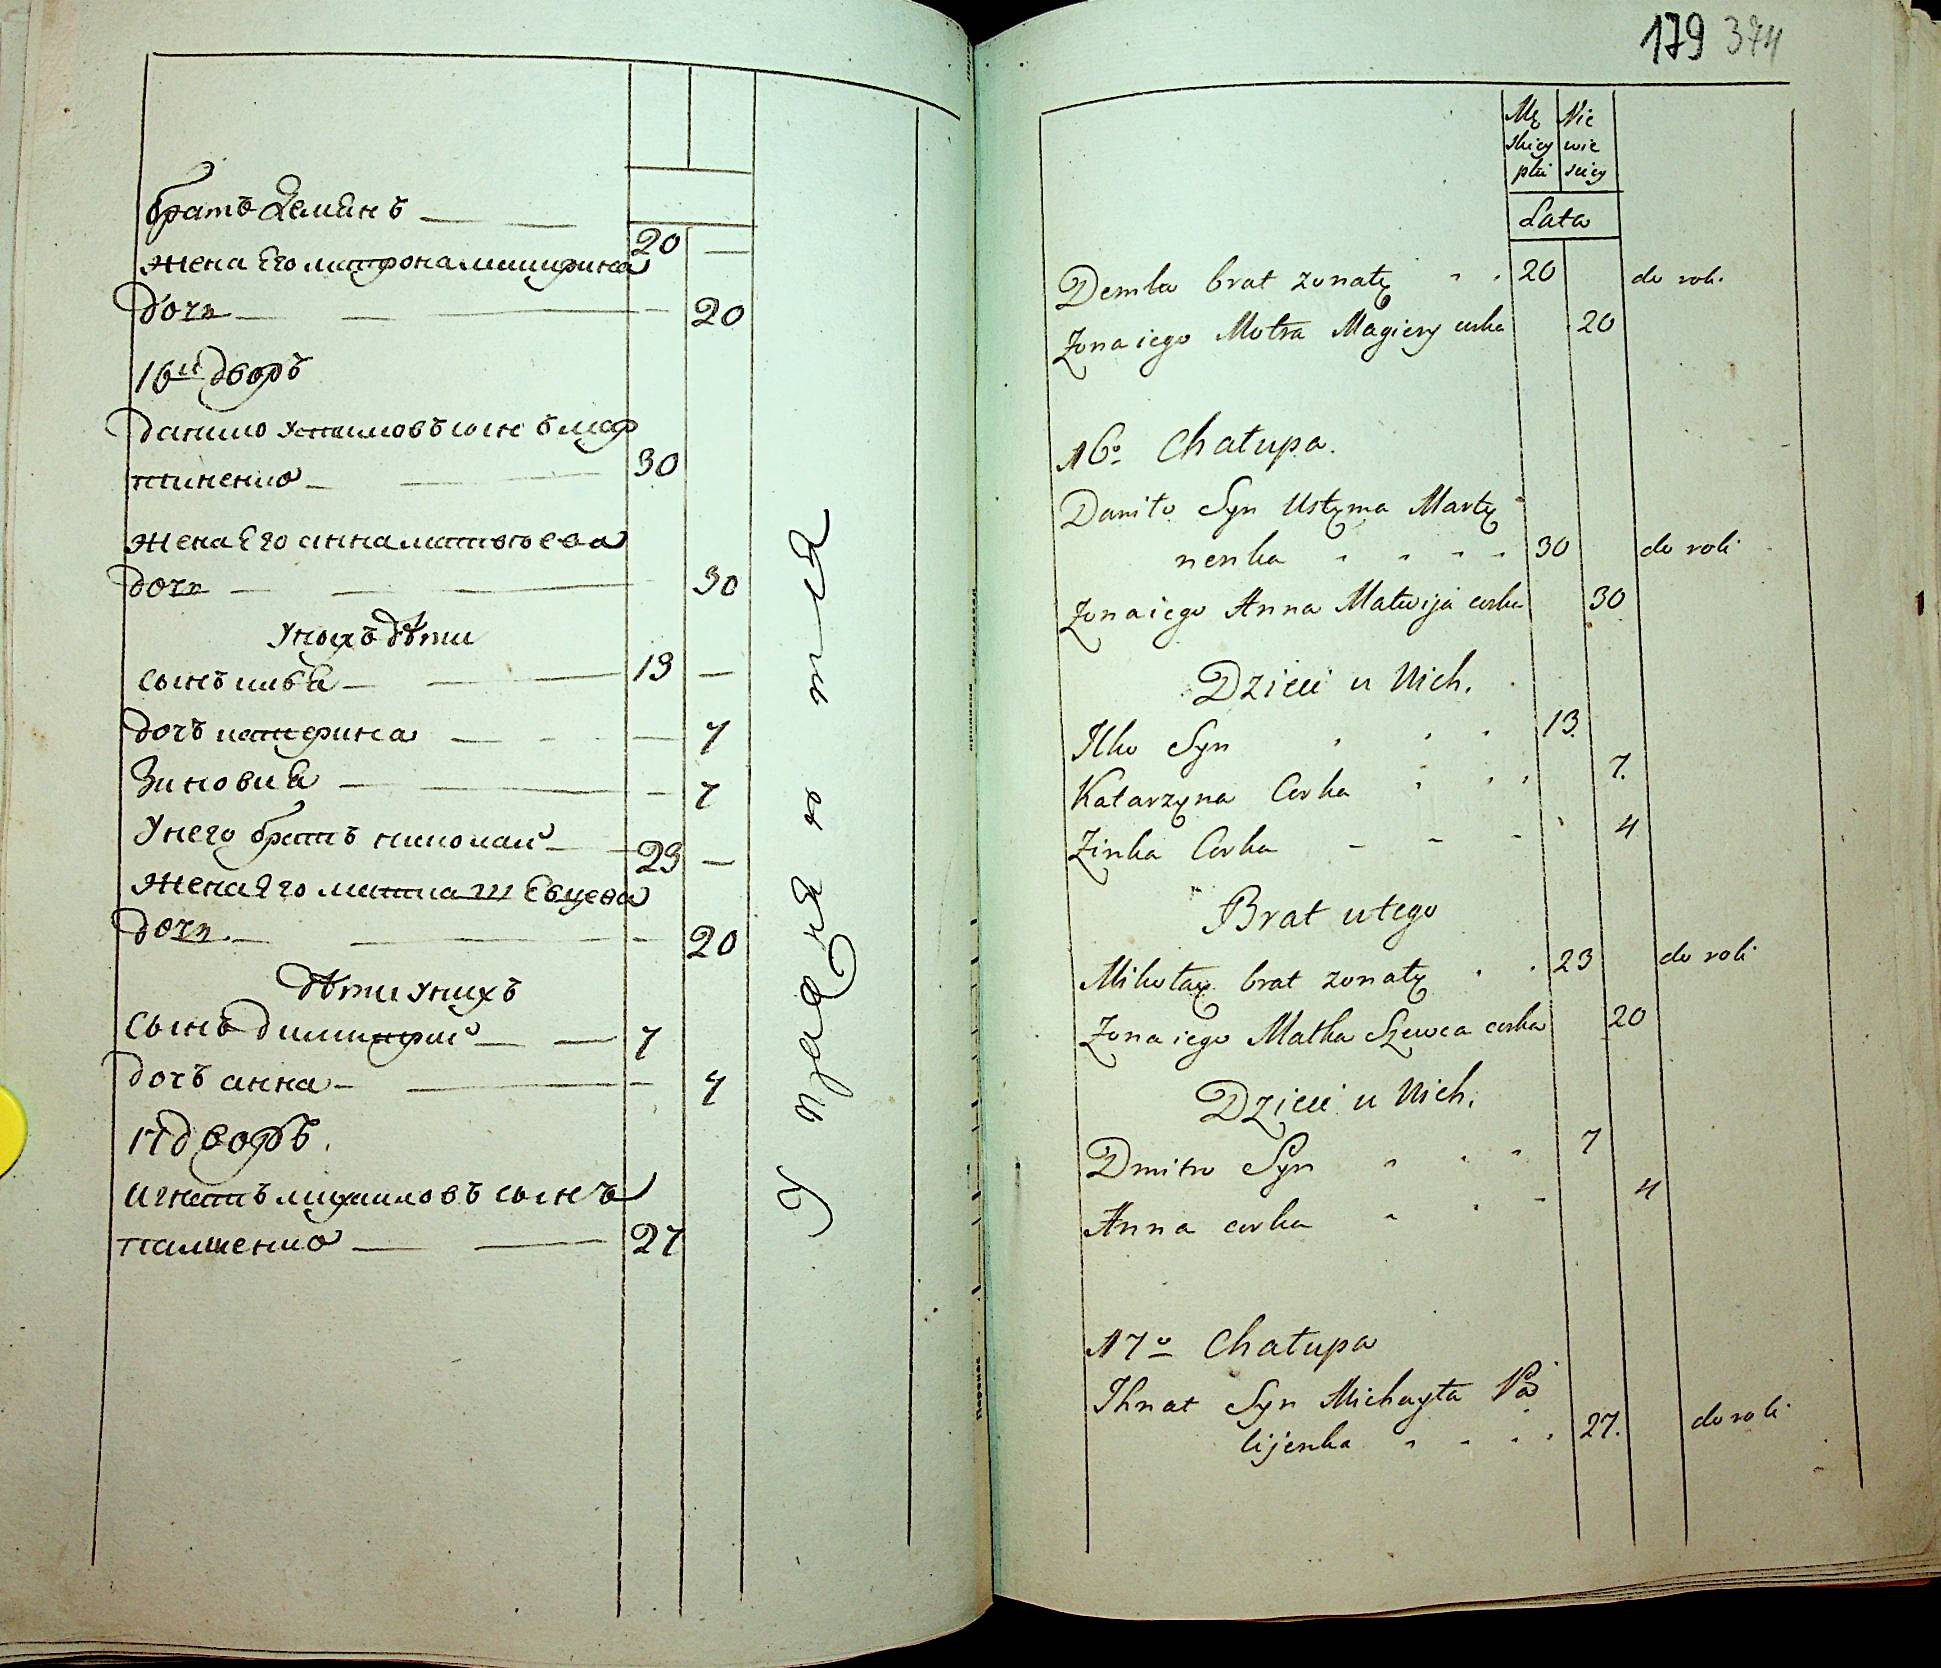 братъ Демянъ 20 —
жена Его матрона
дочь 20
16й дворъ
данило Устимовъ сынъ мар
тиненко 30
жена Его анна матвѣева
дочь 30
Унихъ дѣти
сынъ илья 13 —
дочъ катерина 7
Зиновия 7
Унего братъ николай 23 —
жена Его Евцева
дочь 20
дѣти Унихъ
Сынъ димитрий 7
дочъ анна 4
17 дворъ.
игнатъ михаиловъ сынъ
27
У пзадня тия
179 374
Mę Nie
skiey wie
płci sciey
Lata
Demko brat zonaty 20 do roli
Zona iego Motra Magiery corka 20
16o Chałupa.
Daniło Syn Ustyma Marty
nenka 30 do roli
Zona iego Anna Matwija corka 30
Dzieci u Nich.
Ilko Syn 13.
Katarzyna Corka 7.
Zinka Corka 4
Brat u tego
Mikołay brat zonaty 23 do roli
Zona iego Matka Szewca corka 20
Dzieci u Nich.
Dmitro Syn 7
Anna corka 4
17o Chałupa
Ihnat Syn Michayła Pa
lijenka 27. do roli